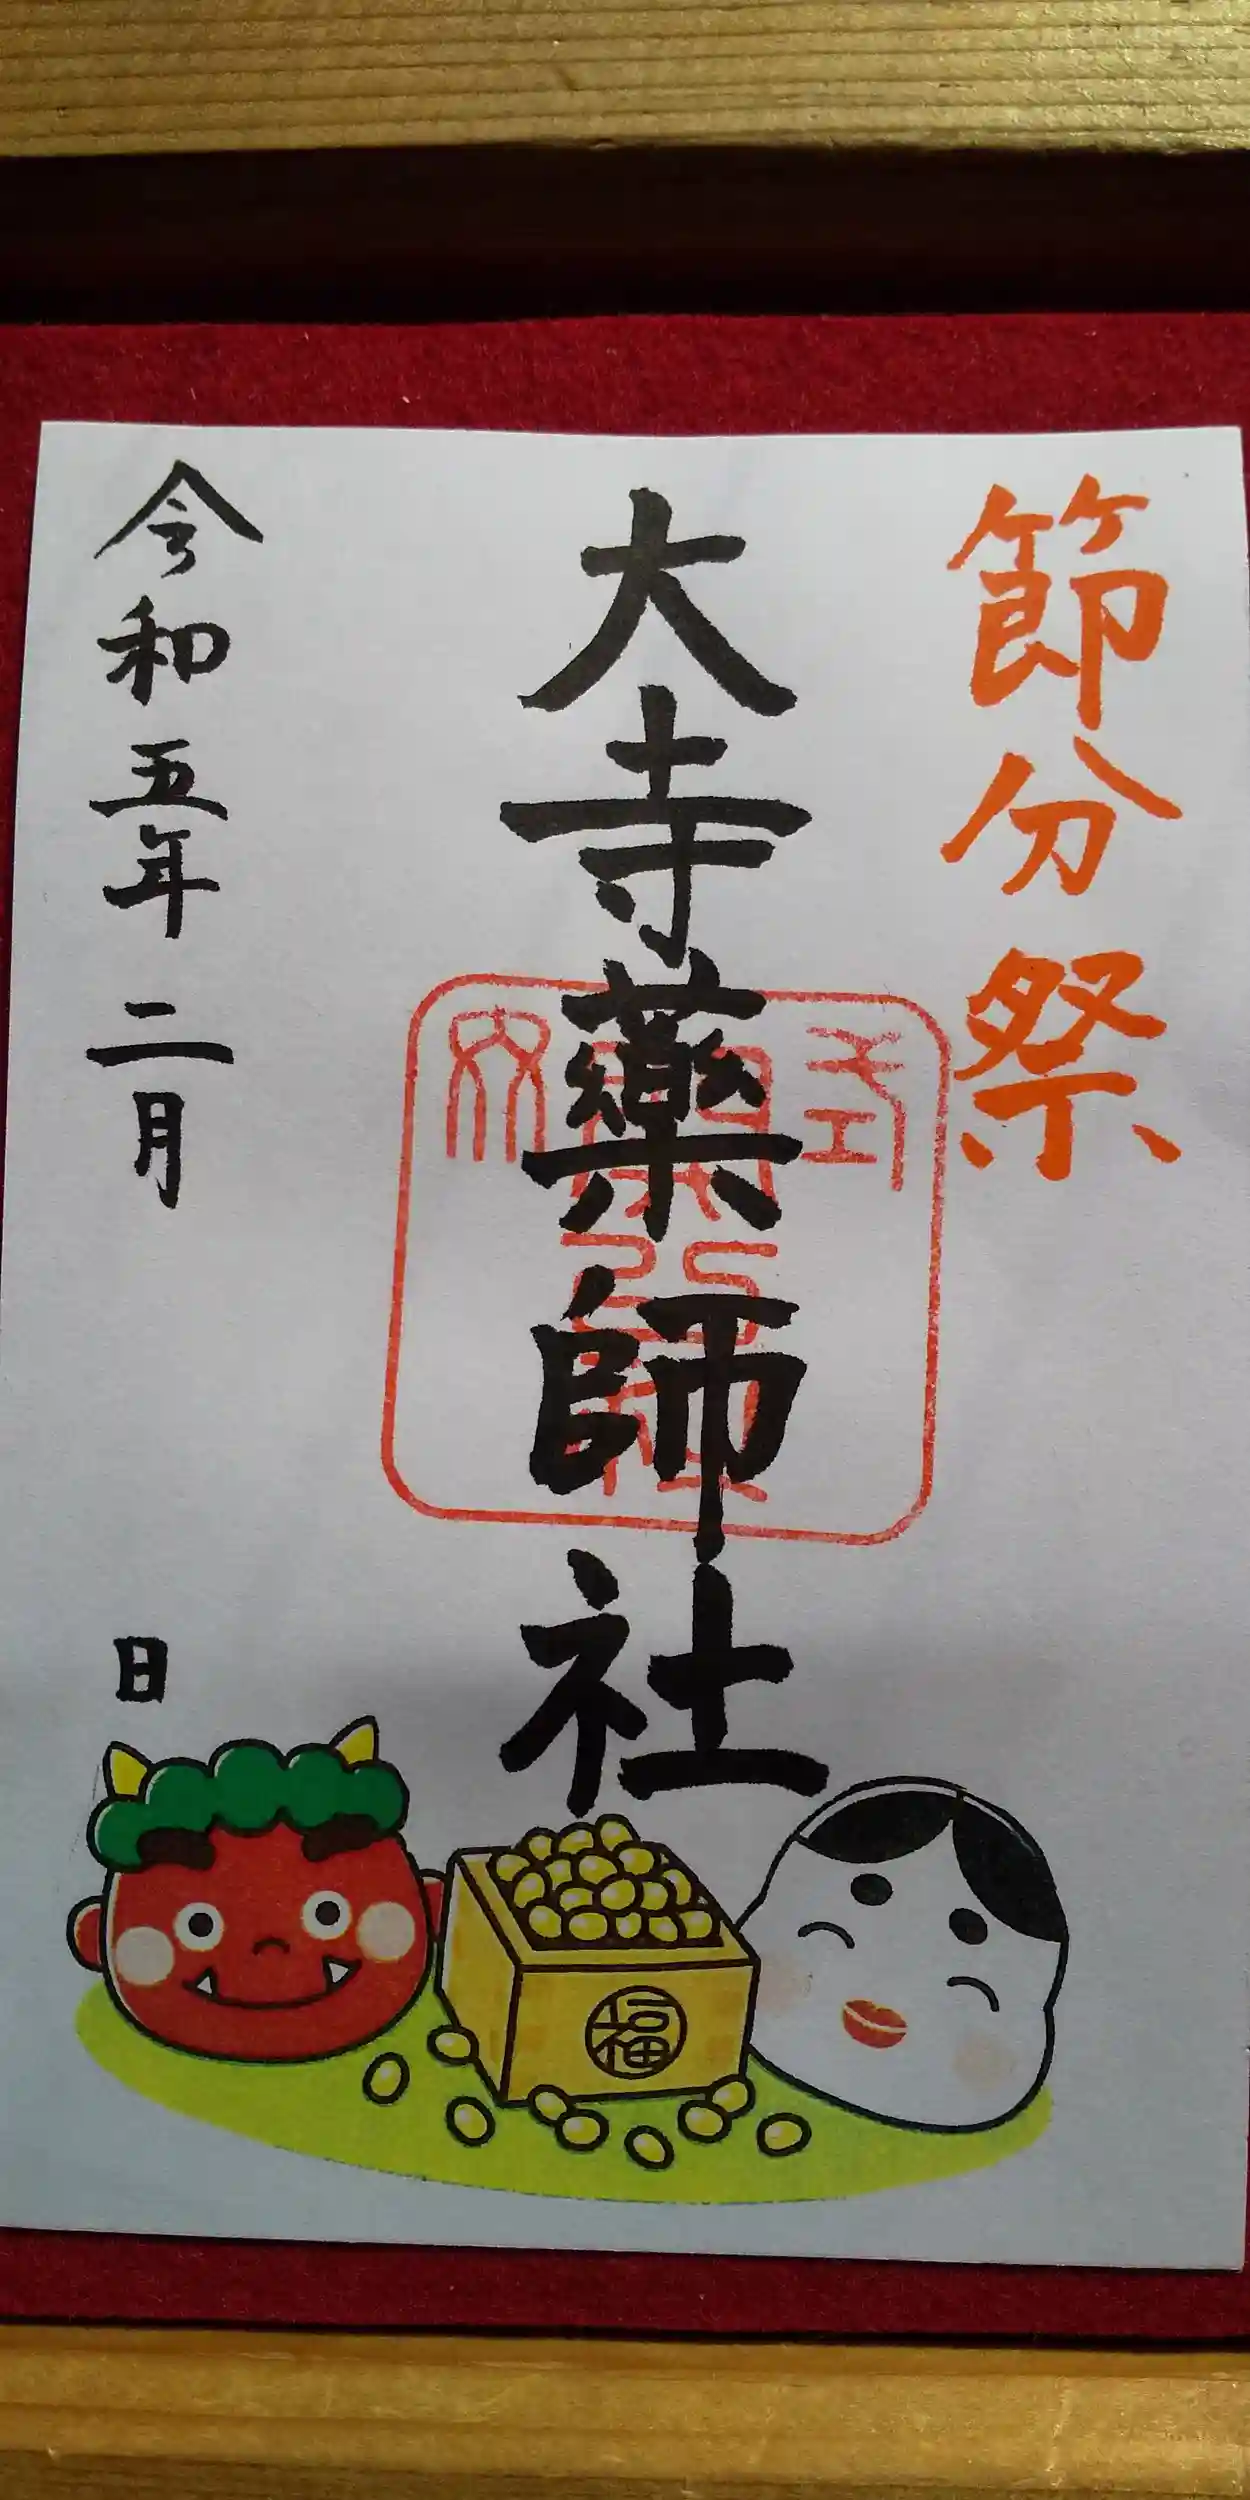 節分祭
大寺藥師社
令和五年二月 日
福